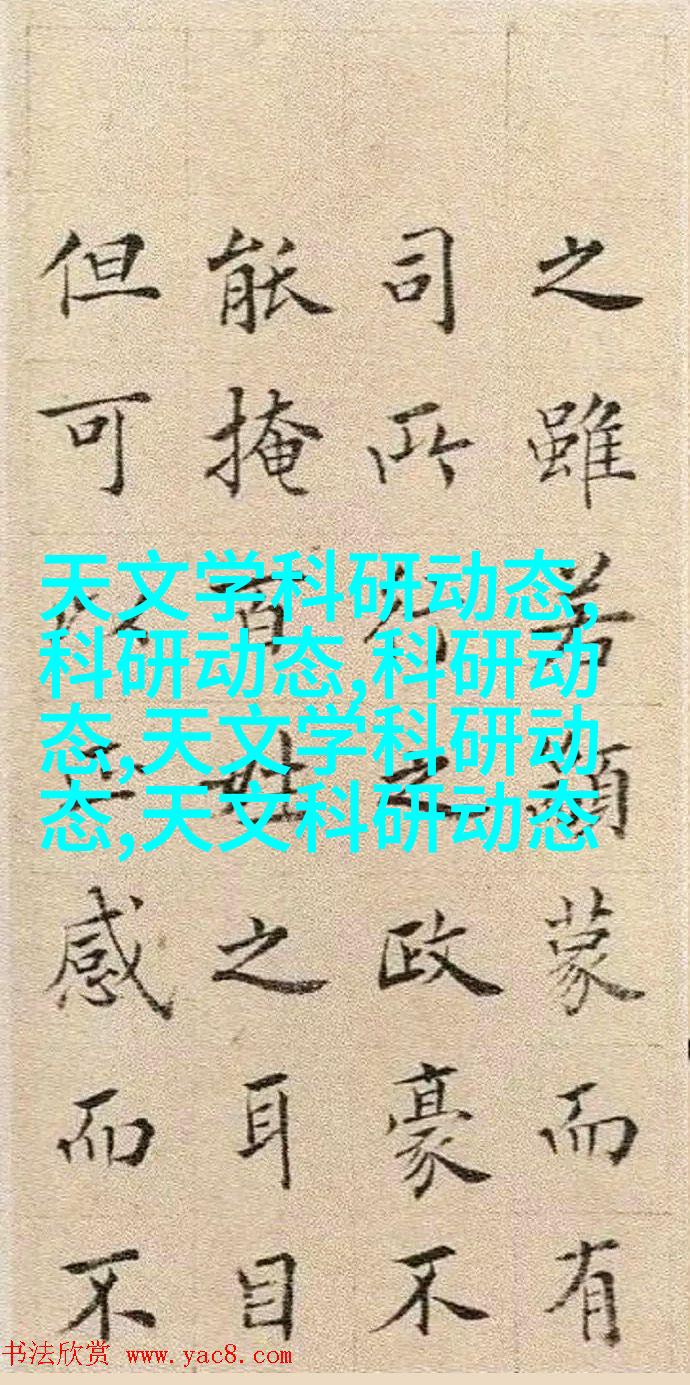 之雖若蒙而有
司所行之政豪不
能掩百姓之耳目
但可感而不
天文学科研动态,
科研动态,科研动
态,天文学科研动
态,天文科研动态
书法欣赏 www.yac8.com